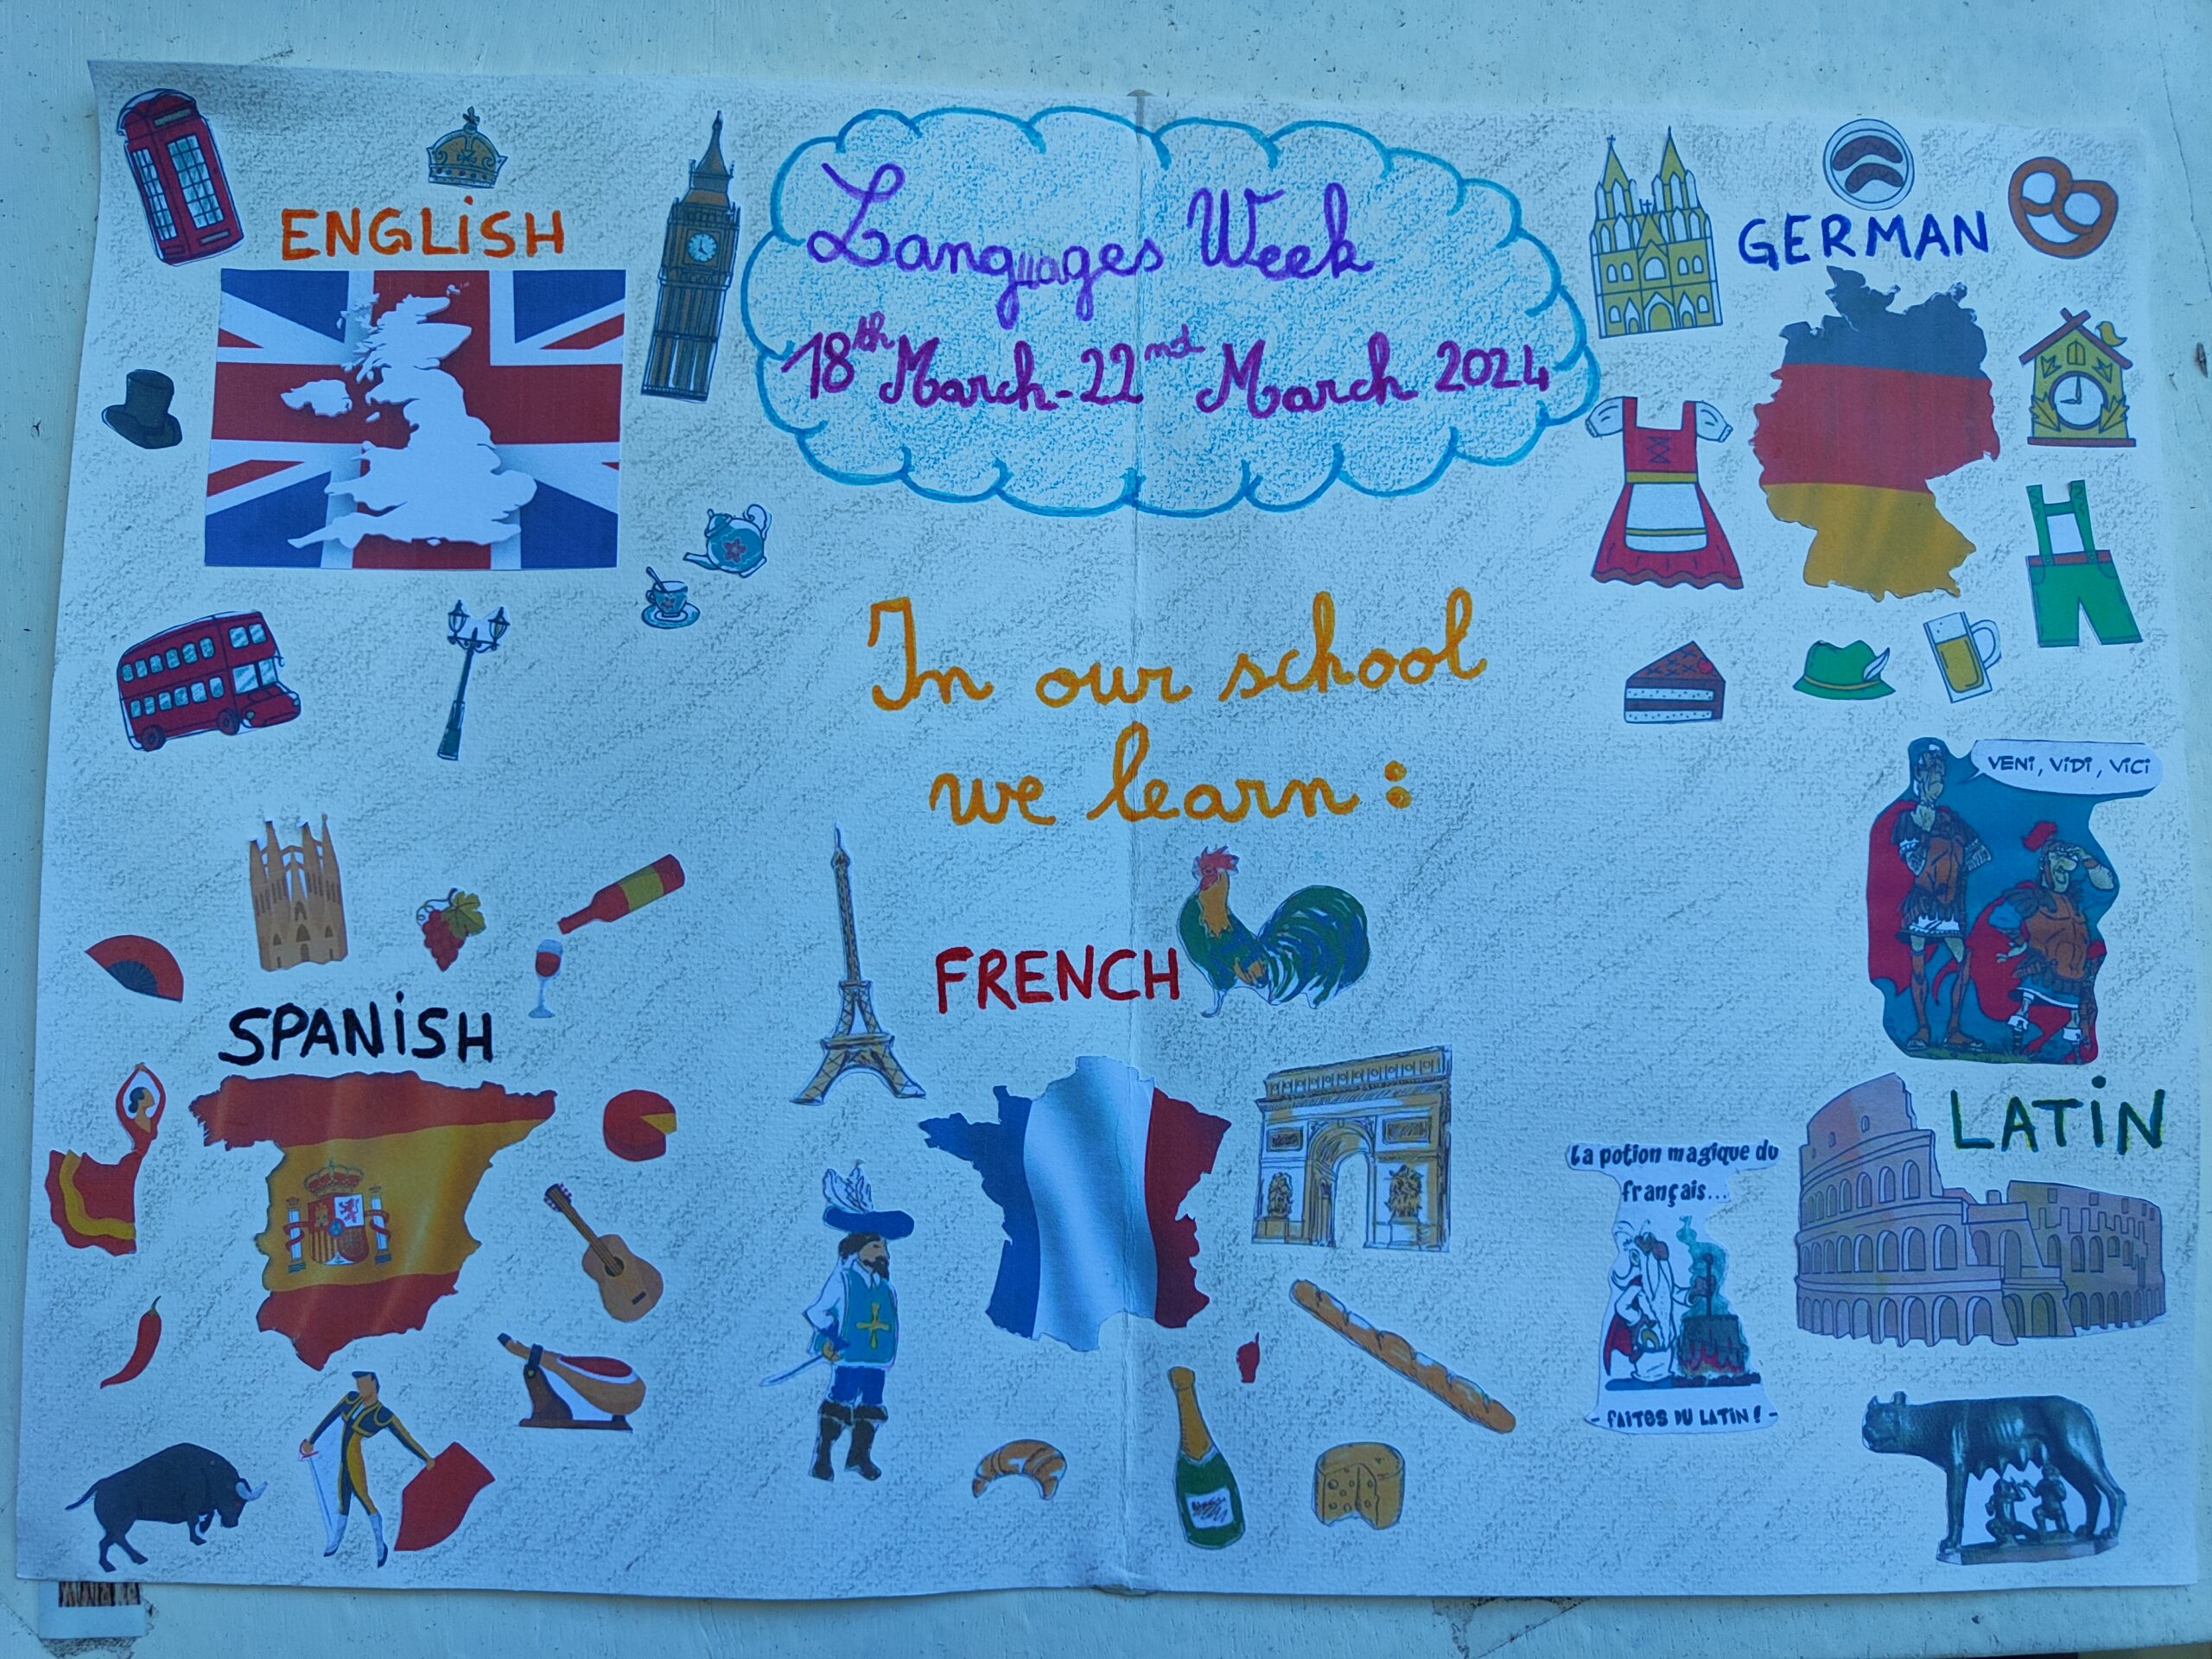 Languages Week
18th March - 22nd March 2024
ENGLISH
GERMAN
In our school
we learn :
VENI, VIDI, VICI
FRENCH
SPANISH
LATIN
La potion magique du
français...
- FAITES DU LATIN ! -